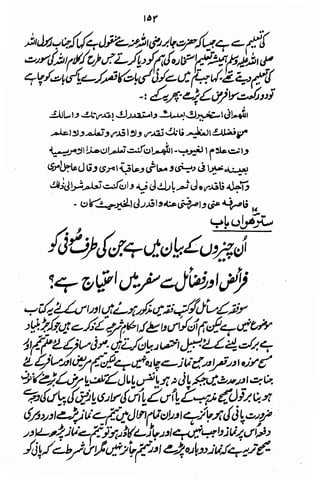 ۱۵۳
کی تعلیم سے ہے جیسا کہ حضرت جابر رضی اللہ عنہ سے منقول ہے کہا کہ جناب رسول اللہ
صلی اللہ علیہ وسلم ہمیشہ تعلیم استخارہ کی ہم کو دیا کرتے جس طرح کہ کلام اللہ کی سورت
کی تعلیم دیتے تھے۔ کہا جب تم میں سے کوئی کسی بات کا قصد کرے یا کسی بات کو چاہے
تو دو رکعت سوا فرض کے پڑھے پھر یہ کہے :۔
فاللهم انى استخيرك بعلمك واستقدرك بقدرتك واسالك
من فضلك العظيم فانك تقدر ولا اقدر وتعلم ولا اعلم
وانت علام الغيوب ۔ اللهم ان كنت تعلم ان هذا الامر يسميه
بعينه خيرا فى دينى و معاشى وعاقبة امرى وقال عاجل امرى
و آجله فاقدره لى ثم بارك لى فيه وان كنت تعلم شر الى ذالك
فاصرفه عنى واصرفنى عنه واقدر لى الخير حيث كان ۔
سترھواں باب
اُن چیزوں کے بیان میں ہے جن کی طرف صوفی کو
فرائض اور فضائل سے سفر میں احتیاج ہے؟
سو فقہ کے مسائل گو کتب فقہ میں مذکور ہوئے ہیں اور اس کے لئے یہ کتاب
موضوع نہیں ہے لیکن ہم اُن کو اس واسطے کہ احکام شرعیہ کے ذکر سے ہیں جو کہ پر بنیاد
ہے برکت لینے کے لئے بسبیل اختصار بیان کرتے ہیں۔ صوفی مسافر کے لئے علم تیمم اور
مسح موزہ اور قصر اور جمع نماز سے چارہ نہیں ہے لیکن تیمم مریض اور مسافر کے لئے
جنابت اور حدث میں جبکہ پانی نہ ہو یا نفس یا مال کے تلف یا مرض کے بڑھنے کا خوف
ہو بنا بر قول صحیح مذہب کے یا اُس کے پاس کی سواری یا رفیق کی پیاس کی وجہ سے
ضرورت پانی کی ہو جائز ہے اور ان تمام احوال میں تیمم سے نماز پڑھے اور دوسری
دفعہ اس پر نماز واجب نہیں ہے اور جاڑے کا ڈر ہو تو تیمم سے نماز پڑھے اور
صحیح تر یہ ہے کہ نماز دوبارہ پڑھے اور تیمم جائز نہیں مگر اس شرط سے کہ پانی کو